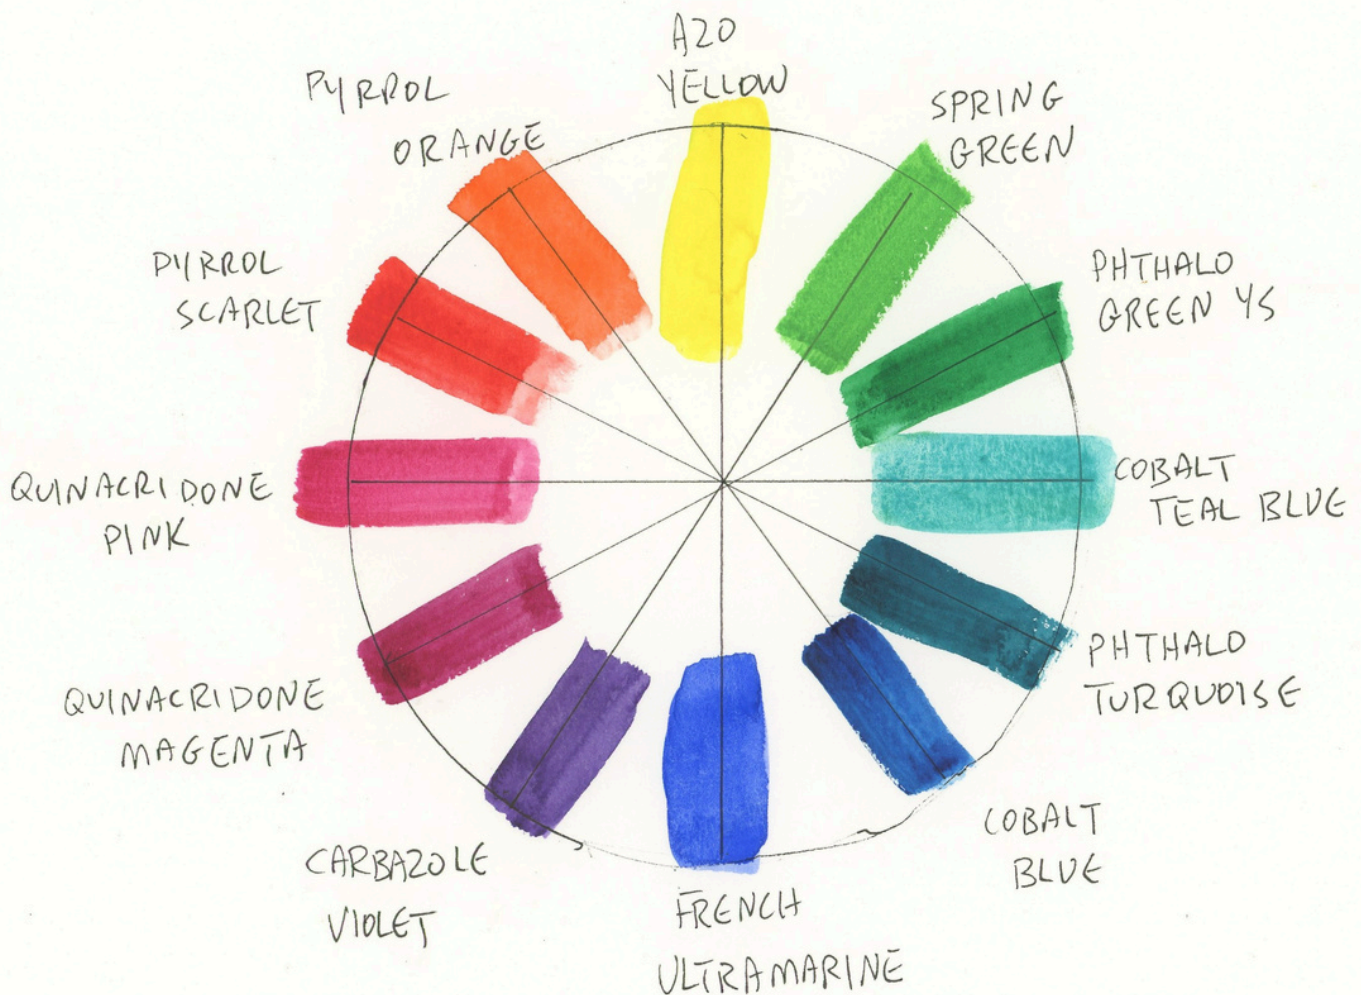 AZO
YELLOW
SPRING
GREEN
PHTHALO
GREEN YS
COBALT
TEAL BLUE
PHTHALO
TURQUOISE
COBALT
BLUE
FRENCH
ULTRAMARINE
CARBAZOLE
VIOLET
QUINACRIDONE
MAGENTA
QUINACRIDONE
PINK
PYRROL
SCARLET
PYRROL
ORANGE